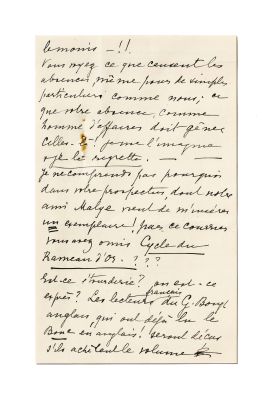 lemonis — !!
Vous voyez ce que causent les
absences, même pour de simples
particuliers comme nous; ce
que votre absence, comme
homme d'affaires doit gêner
celles. Je l'imagine
et je le regrette. — —
Je ne comprends pas pourquoi
dans votre prospectus, dont notre
ami Malye vient de m'envoyer
un exemplaire! par ce courrier
vous avez omis Cycle du
Rameau d'Or. ? ? ?
Est-ce étourderie? ou est-ce
exprès? Les lecteurs français du G. Boug
anglais, qui ont déjà lu le
Bouc en anglais! seront déçus
s'ils achètent le volume